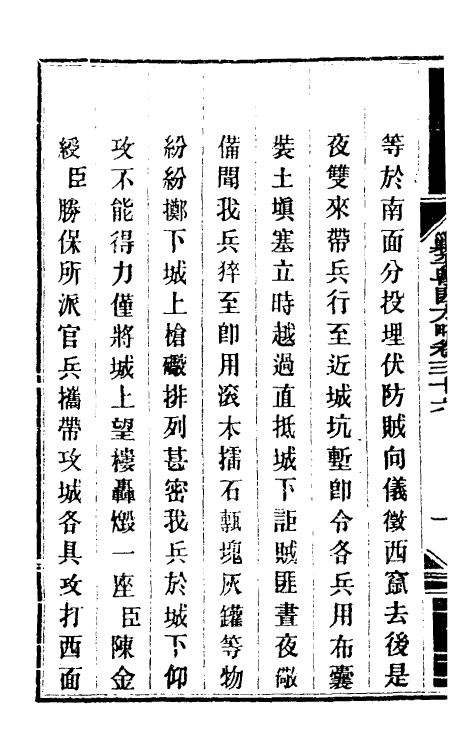 等於南面分投埋伏防賊向儀徵西竄去後是
夜雙來帶兵行至近城坑塹卽令各兵用布囊
裝土塡塞立時越過直抵城下詎賊匪晝夜儆
備聞我兵猝至卽用滚木擂石甎塊灰罐等物
紛紛擲下城上槍礮排列甚密我兵於城下仰
攻不能得力僅將城上望樓轟燬一座臣陳金
綬臣勝保所派官兵攜帶攻城各具攻打西面
剿平粵匪方略卷三十六
一